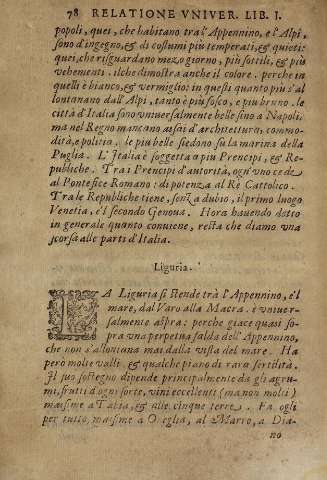 78 RELATIONE VNIVER. LIB. I.
popoli, quei, che habitano tra l'Appennino, e l'Alpi,
sono d'ingegno, & di costumi più temperati, & quieti:
quei, che risguardano mezo giorno, più sottili, & più
vehementi. ilche dimostra anche il colore. perche in
quelli è bianco, & vermiglio: in questi quanto più s'al
lontanano dall'Alpi, tanto è più fosco, e più bruno. le
città d'Italia sono vniuersalmente belle sino a Napoli,
ma nel Regno mancano assai d'architettura, commo-
dità, e politia. le più belle siedono su la marina della
Puglia. L'Italia è soggetta a più Prencipi, & Re-
publiche. Tra i Prencipi d'autorità, ogn'vno cede
al Pontefice Romano: di potenza al Rè Cattolico.
Tra le Republiche tiene, senza dubio, il primo luogo
Venetia, e'l secondo Genoua. Hora hauendo detto
in generale quanto conuiene, resta che diamo vna
scorsa alle parti d'Italia.
Liguria.
LA Liguria si stende trà l'Appennino, e'l
mare, dal Varo alla Macra. è vniuer-
salmente aspra: perche giace quasi so-
pra vna perpetua falda dell'Appennino,
che non s'allontana mai dalla vista del mare. Ha
però molte valli, & qualche piano di rara fertilità.
Il suo sostegno dipende principalmente da gli agru-
mi, frutti d'ogni sorte, vini eccellenti (ma non molti)
massime a Tabia, & alle cinque terre. Fa ogli
per tutto, massime a Oneglia, al Marro, a Dia-
no